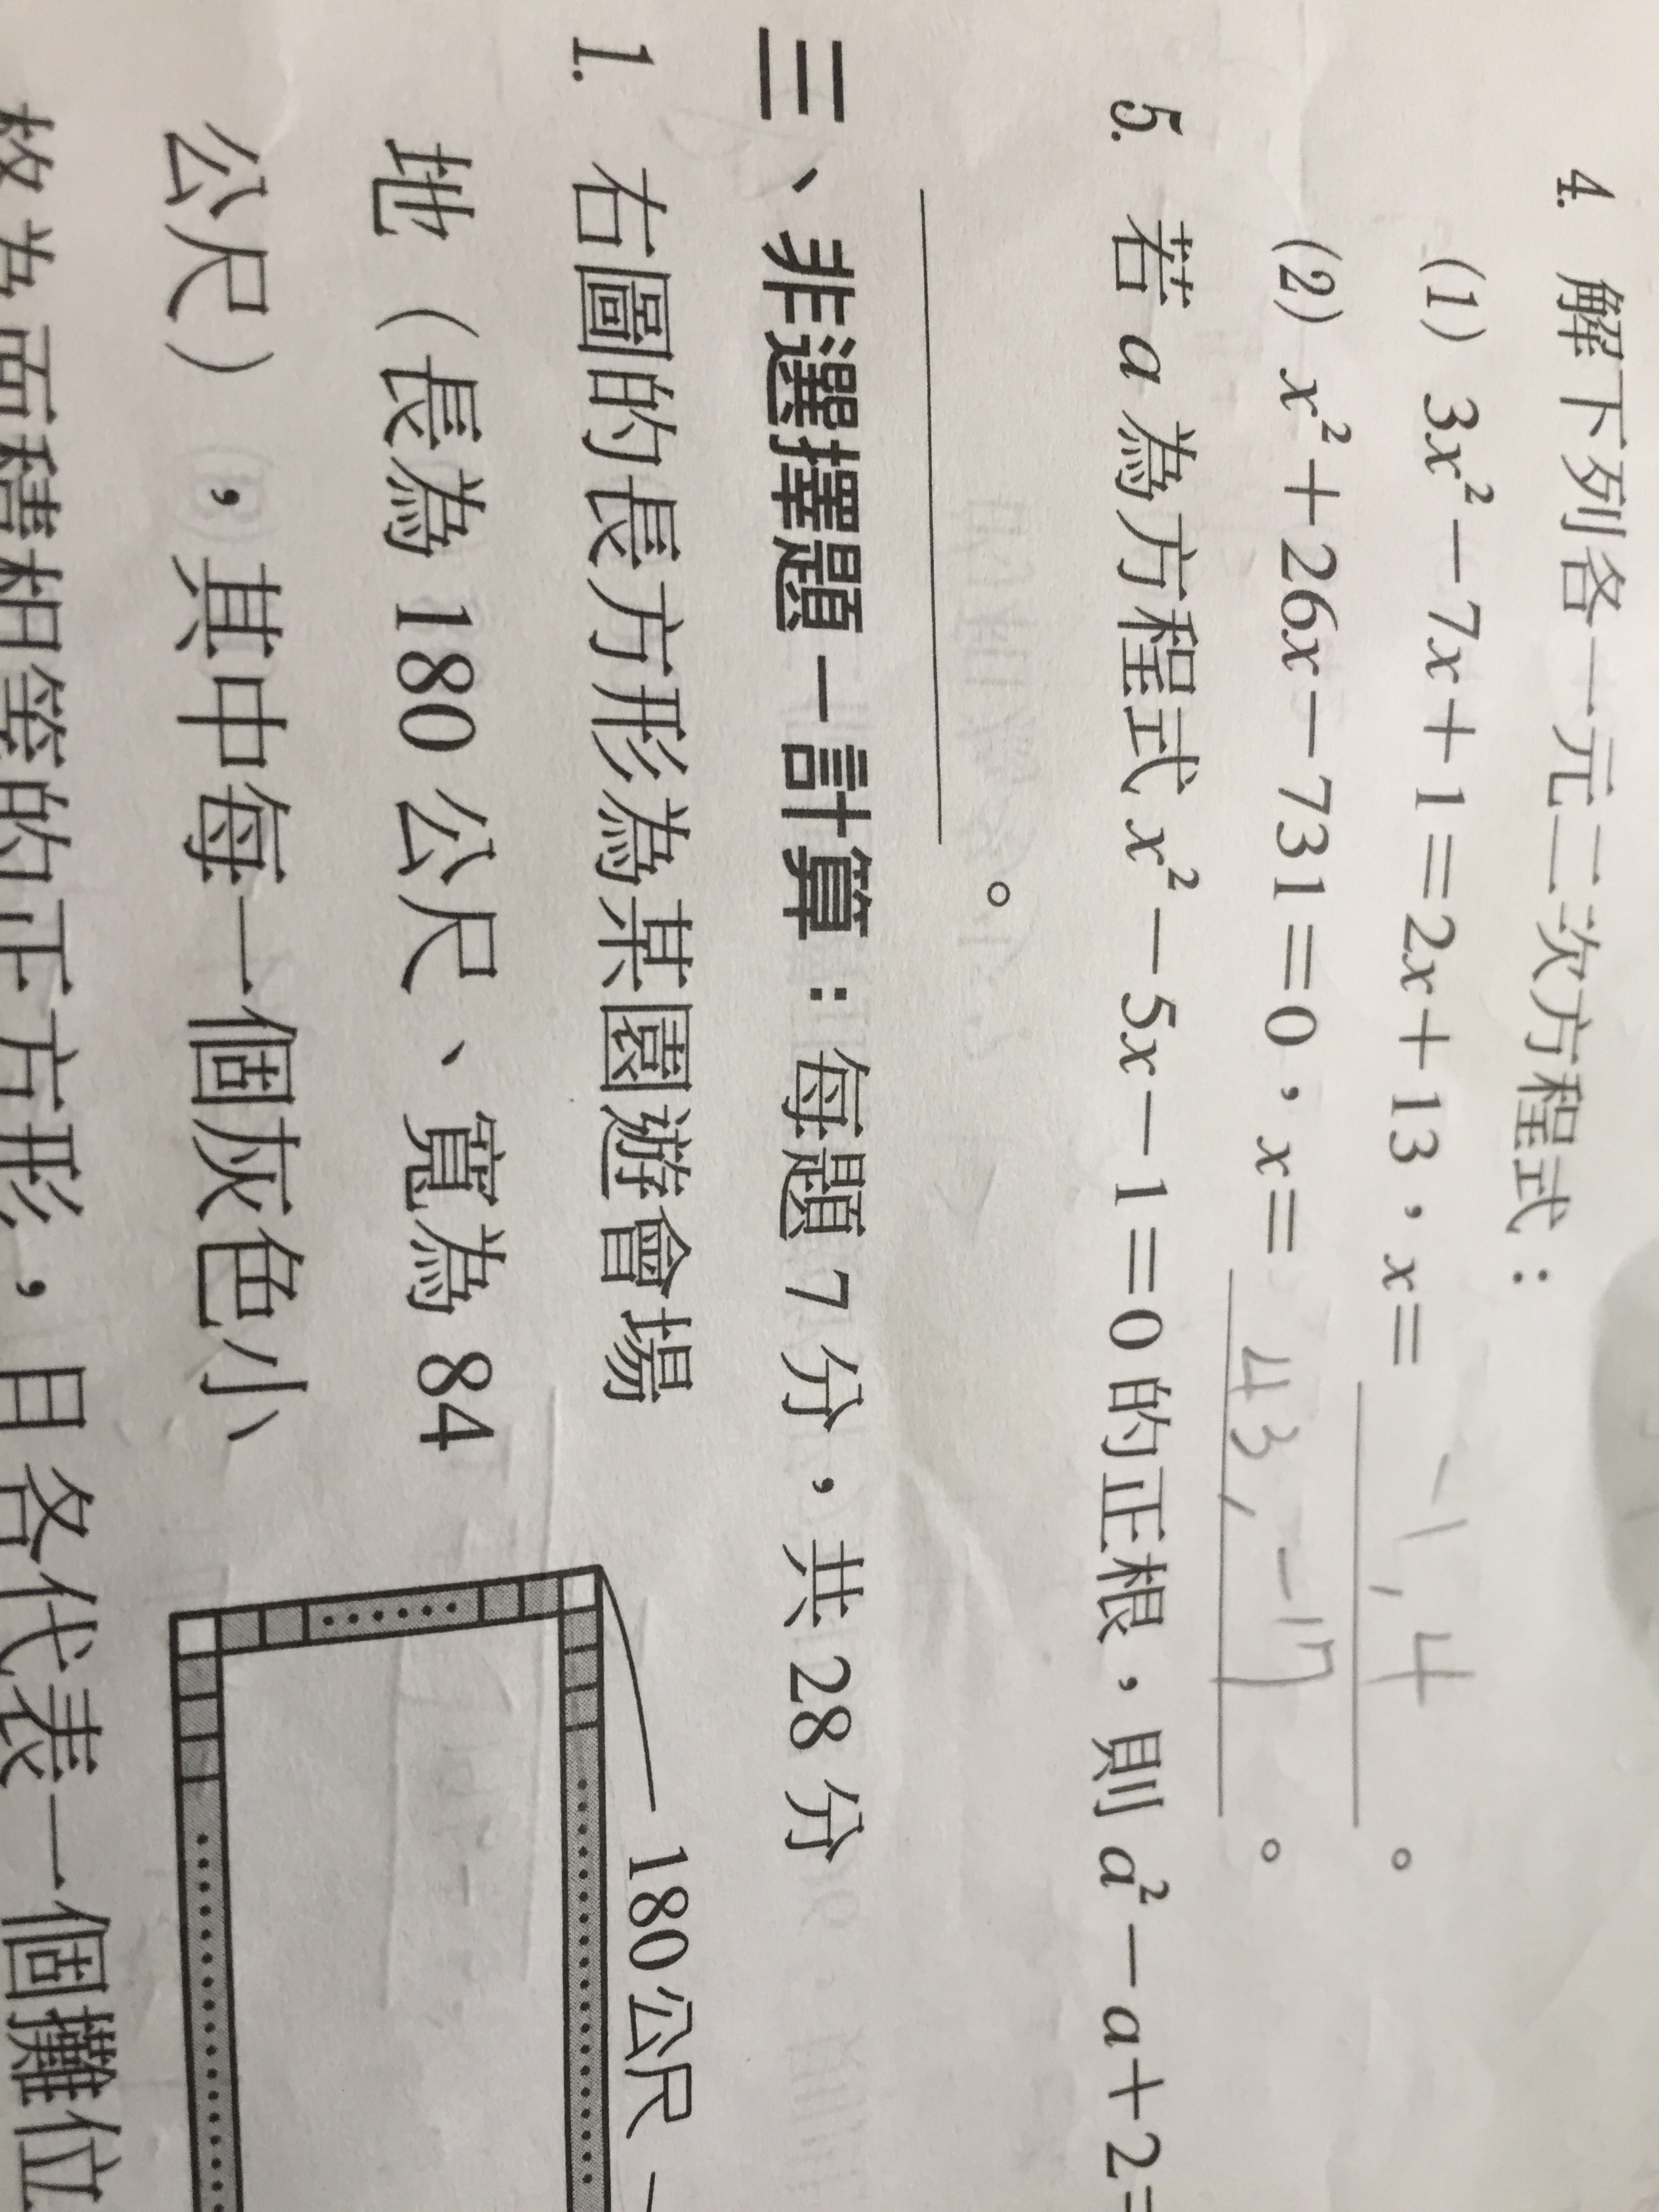 4. 解下列各一元二次方程式：
(1) 3x²－7x＋1＝2x＋13，x＝ －1，4 。
(2) x²＋26x－731＝0，x＝ 43，－17 。
5. 若 a 為方程式 x²－5x－1＝0 的正根，則 a²－a＋2＝
。
三、非選擇題－計算：每題 7 分，共 28 分
1. 右圖的長方形為某園遊會場
地（長為 180 公尺、寬為 84
公尺），其中每一個灰色小
格為面積相等的正方形，且各代表一個攤位
180公尺